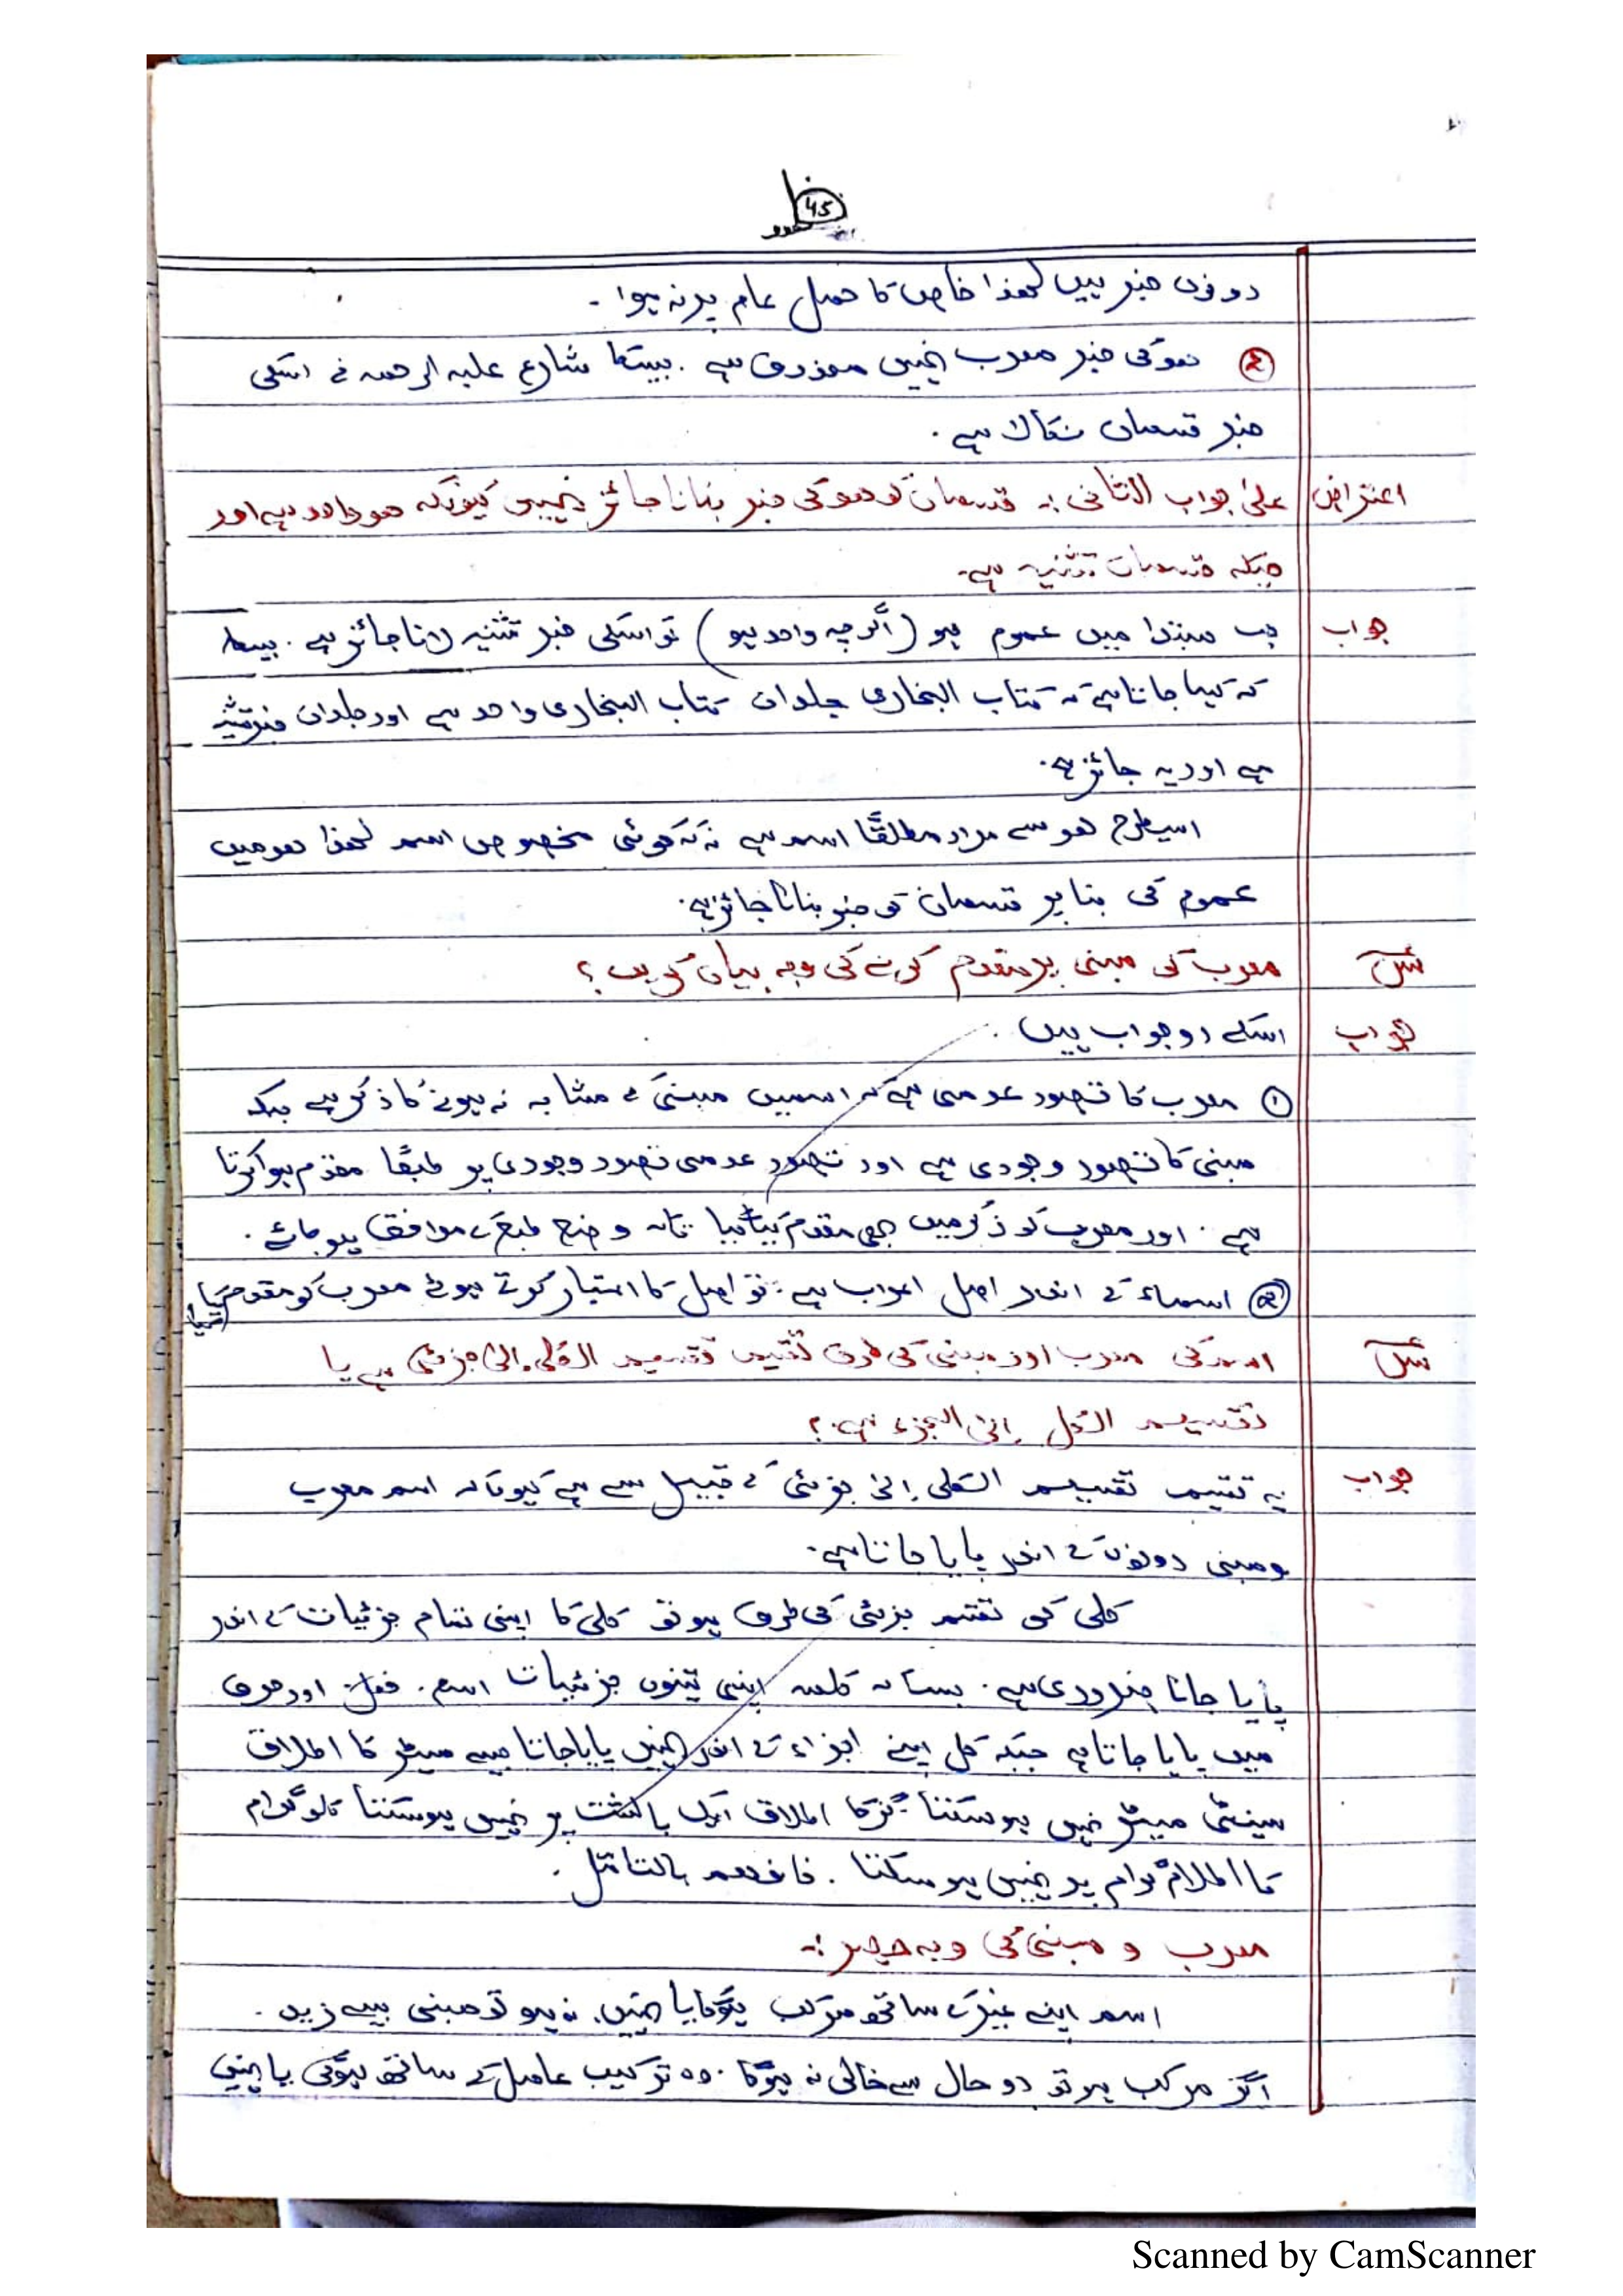 45
دونوں خبر ہیں لھذا خاص کا حمل عام پر نہ ہوا ۔
② ھو کی خبر معرب نہیں محذوف ہے ۔ جیسکا شارح علیہ الرحمہ نے اسکی
خبر قسمان نکالا ہے ۔
اعتراض علیٰ جواب الثانی :۔ قسمان کو ھو کی خبر بنانا جائز نہیں کیونکہ ھو واحد ہے اور
جبکہ قسمان تثنیہ ہے۔
جواب جب مبتدا میں عموم ہو (اگرچہ واحد ہو) تو اسکی خبر تثنیہ لانا جائز ہے ۔ جیسا
کہ کہا جاتا ہے کہ کتاب البخاری جلدان کتاب البخاری واحد ہے اور جلدان خبر تثنیہ
ہے اور یہ جائز ہے۔
اسیطرح ھو سے مراد مطلقًا اسم ہے نہ کہ کوئی مخصوص اسم لھذا ھو میں
عموم کی بنا پر قسمان کو خبر بنانا جائز ہے۔
سں معرب کی مبنی پر مقدم کرنے کی وجہ بیان کریں ؟
جواب اسکے دو جواب ہیں ۔
① معرب کا تصور عدمی ہے کہ اسمیں مبنی کے مشابہ نہ ہونے کا ذکر ہے جبکہ
مبنی کا تصور وجودی ہے اور تصور عدمی تصور وجودی پر طبعًا مقدم ہوا کرتا
ہے ۔ اور معرب کو ذکر میں بھی مقدم کیا تاکہ وضع طبع کے موافق ہو جائے ۔
② اسماء کے اندر اصل اعراب ہے ۔ تو اصل کا اعتبار کرتے ہوئے معرب کو مقدم کیا
سں اسم کی معرب اور مبنی کی طرف تقسیم تقسیم الکلی الیٰ جزئی ہے یا
تقسیم الکل الی الجزء ہے ؟
جواب یہ تقسیم تقسیم الکلی الیٰ جزئی کے قبیل سے ہے کیونکہ اسم معرب
ومبنی دونوں کے اندر پایا جاتا ہے۔
کلی کی تقسیم جزئی کی طرف ہو تو کلی کا اپنی تمام جزئیات کے اندر
پایا جانا ضروری ہے ۔ جیسا کہ کلمہ اپنی تینوں جزئیات اسم ، فعل اور حرف
میں پایا جاتا ہے جبکہ کل اپنے اجزاء کے اندر نہیں پایا جاتا جیسے میٹر کا اطلاق
سینٹی میٹر نہیں ہو سکتا گز کا اطلاق ایک بالشت پر نہیں ہو سکتا کلو گرام
کا اطلاق گرام پر نہیں ہو سکتا ۔ فافھم بالتامل ۔
معرب و مبنی کی وجہ حصر :۔
اسم اپنے غیر کے ساتھ مرکب ہوگا یا نہیں، نہ ہو تو مبنی جیسے زید ۔
اگر مرکب ہو تو دو حال سے خالی نہ ہوگا ۔ وہ ترکیب عامل کے ساتھ ہوگی یا نہیں
Scanned by CamScanner